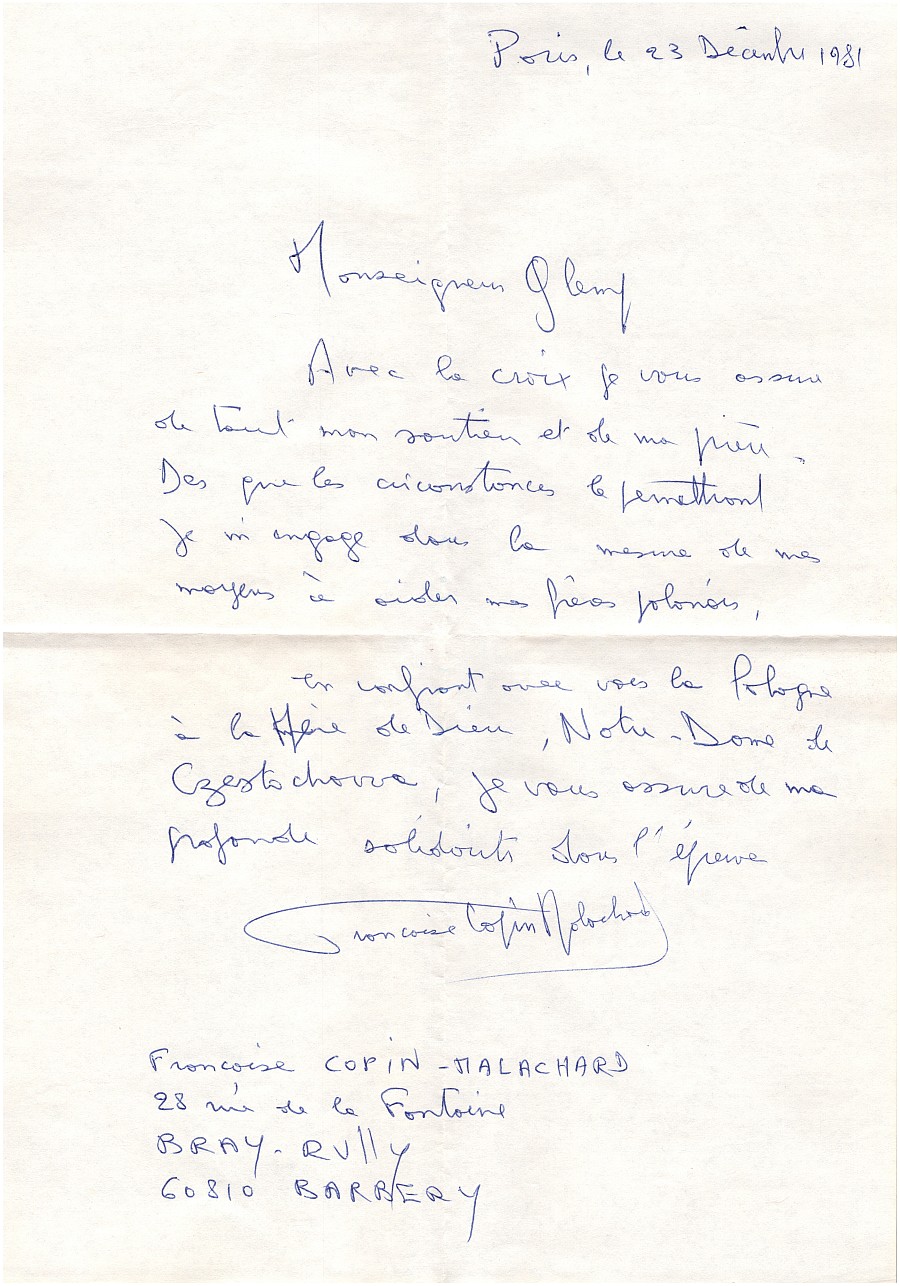 Paris, le 23 Décembre 1981
Monseigneur Glemp
Avec la croix je vous assure
de tout mon soutien et de ma prière.
Des que les circonstances le permettront
je m'engage dans la mesure de mes
moyens à aider mes frères polonais,
en confiant avec vous la Pologne
à la Mère de Dieu, Notre-Dame de
Czestochowa, je vous assure de ma
profonde solidarité dans l'épreuve
Francoise Copin Malachard
Francoise COPIN-MALACHARD
28 rue de la Fontaine
BRAY-RULLY
60810 BARBERY